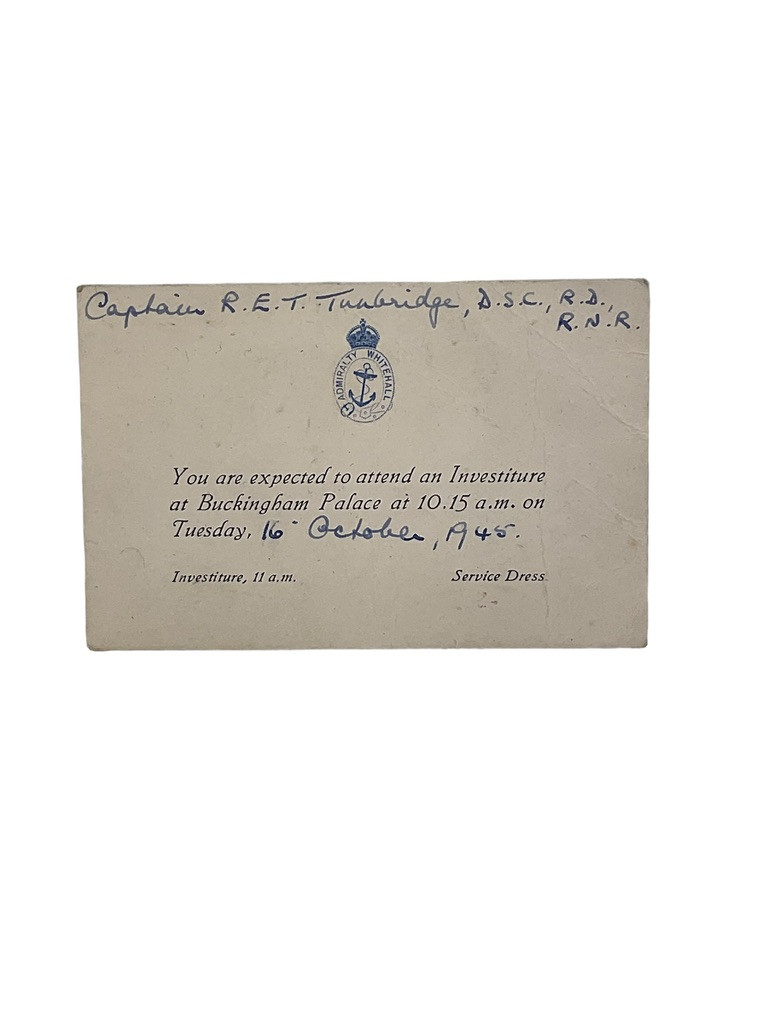 Captain R.E.T. Tunbridge, D.S.C., R.D.,
R.N.R.
ADMIRALTY WHITEHALL
You are expected to attend an Investiture
at Buckingham Palace at 10.15 a.m. on
Tuesday, 16 October, 1945.
Investiture, 11 a.m. Service Dress